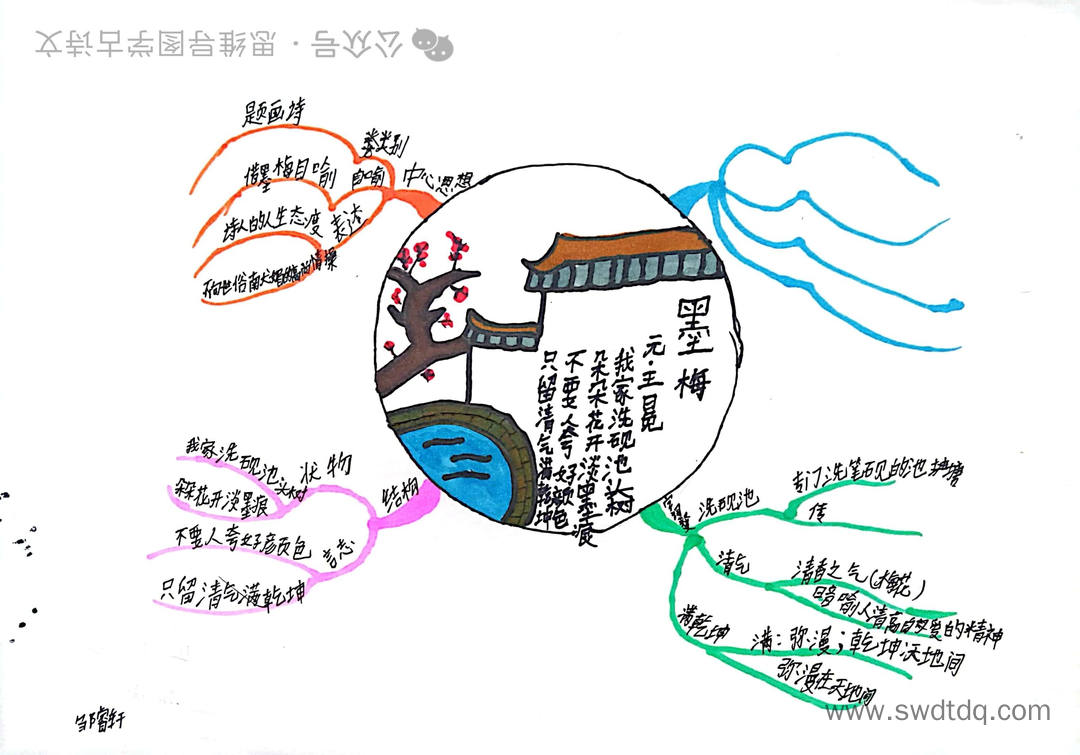 公众号·思维导图学古诗文
墨梅
元·王冕
我家洗砚池头树
朵朵花开淡墨痕
不要人夸好颜色
只留清气满乾坤
中心思想
类别
题画诗
自喻
借墨梅自喻
表达
诗人的人生态度
不向世俗
结构
状物
我家洗砚池头树
朵朵花开淡墨痕
言志
不要人夸好颜色
只留清气满乾坤
洗砚池
专门洗笔砚的池
传
清气
清香之气(梅花)
暗喻人清高自爱的精神
满乾坤
满：弥漫；乾坤天地间
弥漫在天地间
邹睿轩
www.swdtdq.com